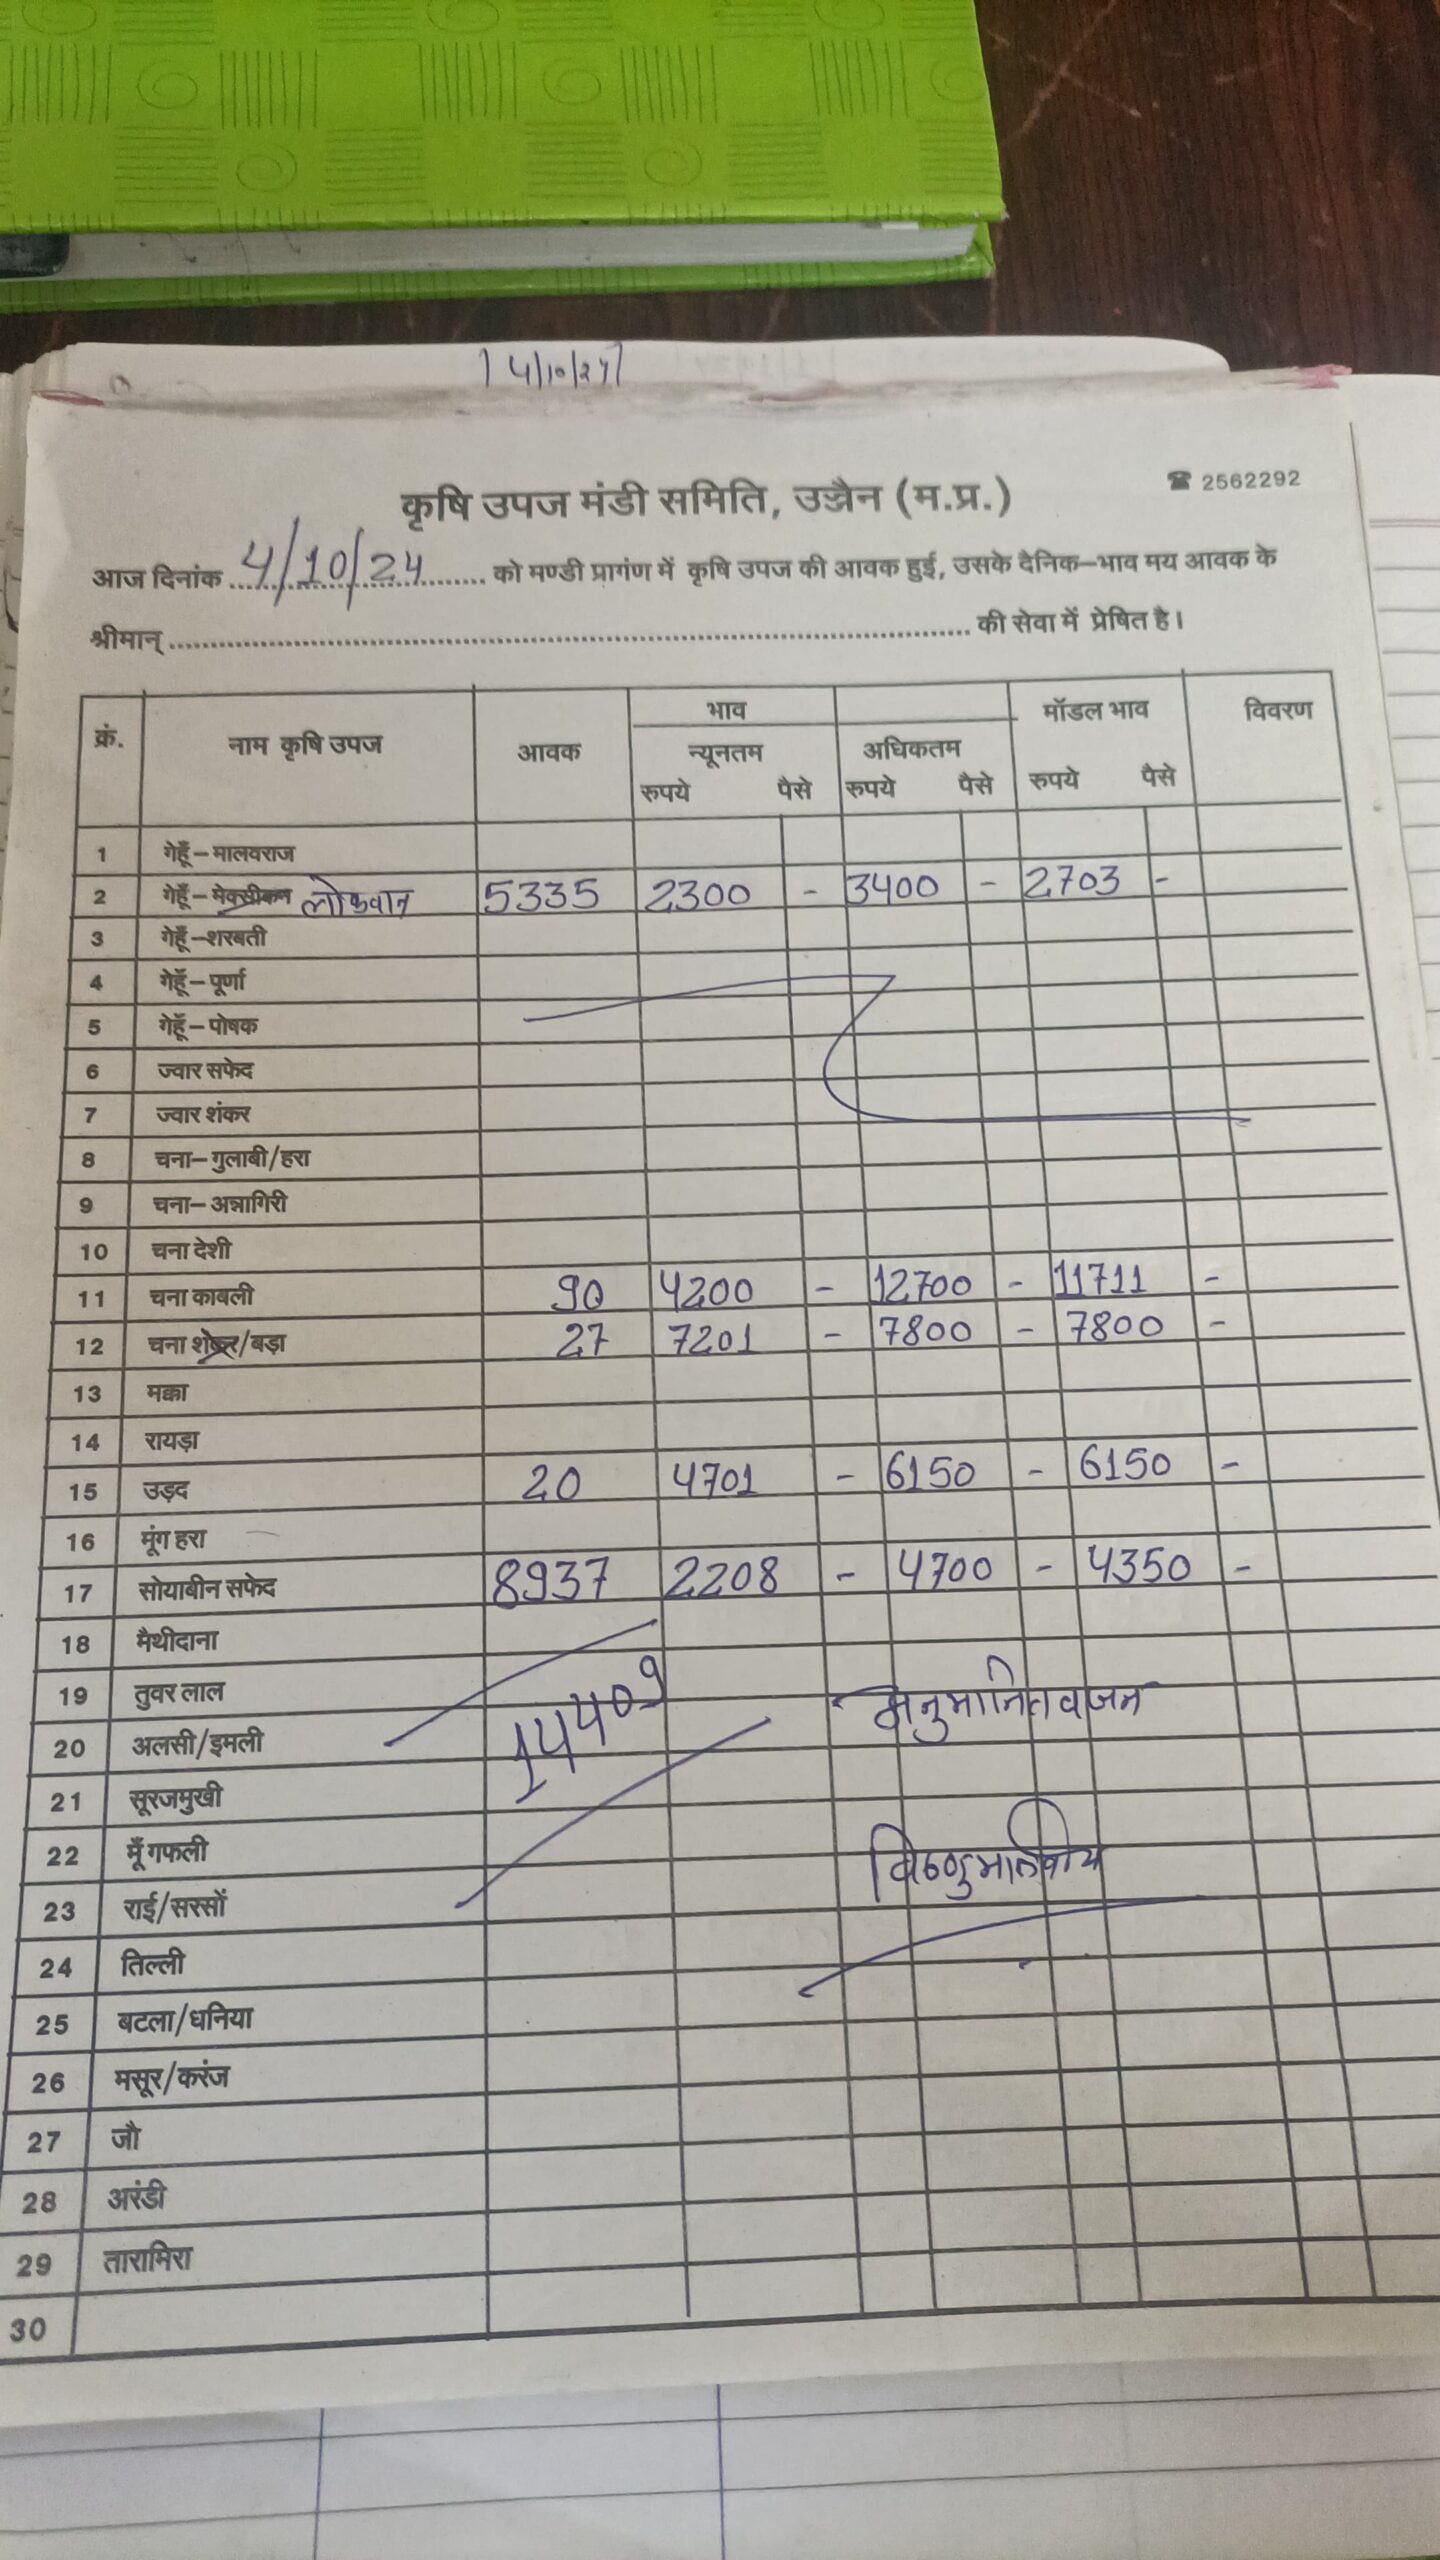 14/10/24
कृषि उपज मंडी समिति, उज्जैन (म.प्र.) ☎ 2562292
आज दिनांक 4/10/24 को मण्डी प्रागंण में कृषि उपज की आवक हुई, उसके दैनिक–भाव मय आवक के
श्रीमान् ........................ की सेवा में प्रेषित है।
क्रं. नाम कृषि उपज आवक भाव मॉडल भाव विवरण
न्यूनतम अधिकतम
रुपये पैसे रुपये पैसे रुपये पैसे
1 गेहूँ–मालवराज
2 गेहूँ–मेक्सीकन लोकवान 5335 2300 - 3400 - 2703 -
3 गेहूँ–शरबती
4 गेहूँ–पूर्णा
5 गेहूँ–पोषक
6 ज्वार सफेद
7 ज्वार शंकर
8 चना–गुलाबी/हरा
9 चना–अन्नागिरी
10 चना देशी
11 चना काबली 90 4200 - 12700 - 11711 -
12 चना शंकर/बड़ा 27 7201 - 7800 - 7800 -
13 मक्का
14 रायड़ा
15 उड़द 20 4701 - 6150 - 6150 -
16 मूंग हरा
17 सोयाबीन सफेद 8937 2208 - 4700 - 4350 -
18 मैथीदाना
19 तुवर लाल 14409 अनुमानित वजन
20 अलसी/इमली
21 सूरजमुखी
22 मूँगफली विष्णु मालवीय
23 राई/सरसों
24 तिल्ली
25 बटला/धनिया
26 मसूर/करंज
27 जौ
28 अरंडी
29 तारामिरा
30